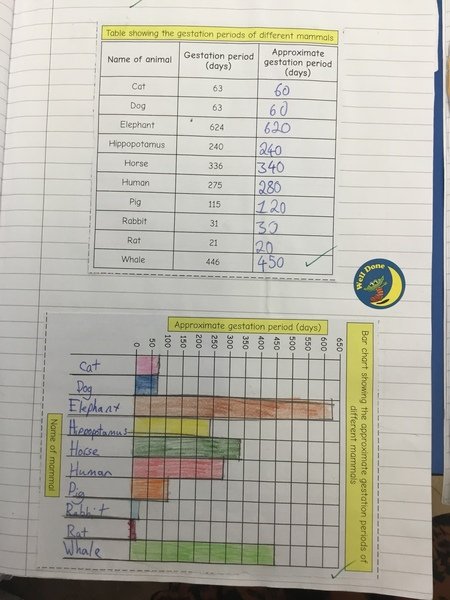 Table showing the gestation periods of different mammals
Name of animal Gestation period (days) Approximate gestation period (days)
Cat 63 60
Dog 63 60
Elephant 624 620
Hippopotamus 240 240
Horse 336 340
Human 275 280
Pig 115 120
Rabbit 31 30
Rat 21 20
Whale 446 450
Well Done
Bar chart showing the approximate gestation periods of
different mammals
Approximate gestation period (days)
0 50 100 150 200 250 300 350 400 450 500 550 600 650
Cat
Dog
Elephant
Hippopotamus
Horse
Human
Pig
Rabbit
Rat
Whale
Name of mammal